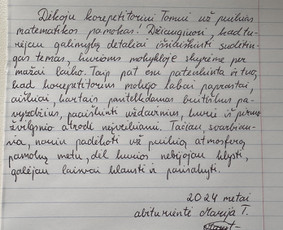 Dėkoju korepetitoriui Tomui už puikias
matematikos pamokas! Džiaugiuosi, kad tu-
rėjau galimybę detaliai išsiaiškinti sudėtin-
gas temas, kurioms mokykloje skyrėme per
mažai laiko. Taip pat esu patenkinta ir tuo,
kad korepetitorius mokėjo labai paprastai,
aiškiai, kartais pasitelkdamas buitinius pa-
vyzdžius, paaiškinti uždavinius, kurie iš pirmo
žvilgsnio atrodė neįveikiami. Tačiau, svarbiau-
sia, noriu padėkoti už puikią atmosferą
pamokų metu, dėl kurios nebijojau klysti,
galėjau laisvai klausti ir pasisakyti.
2024 metai
abiturientė Marija T.